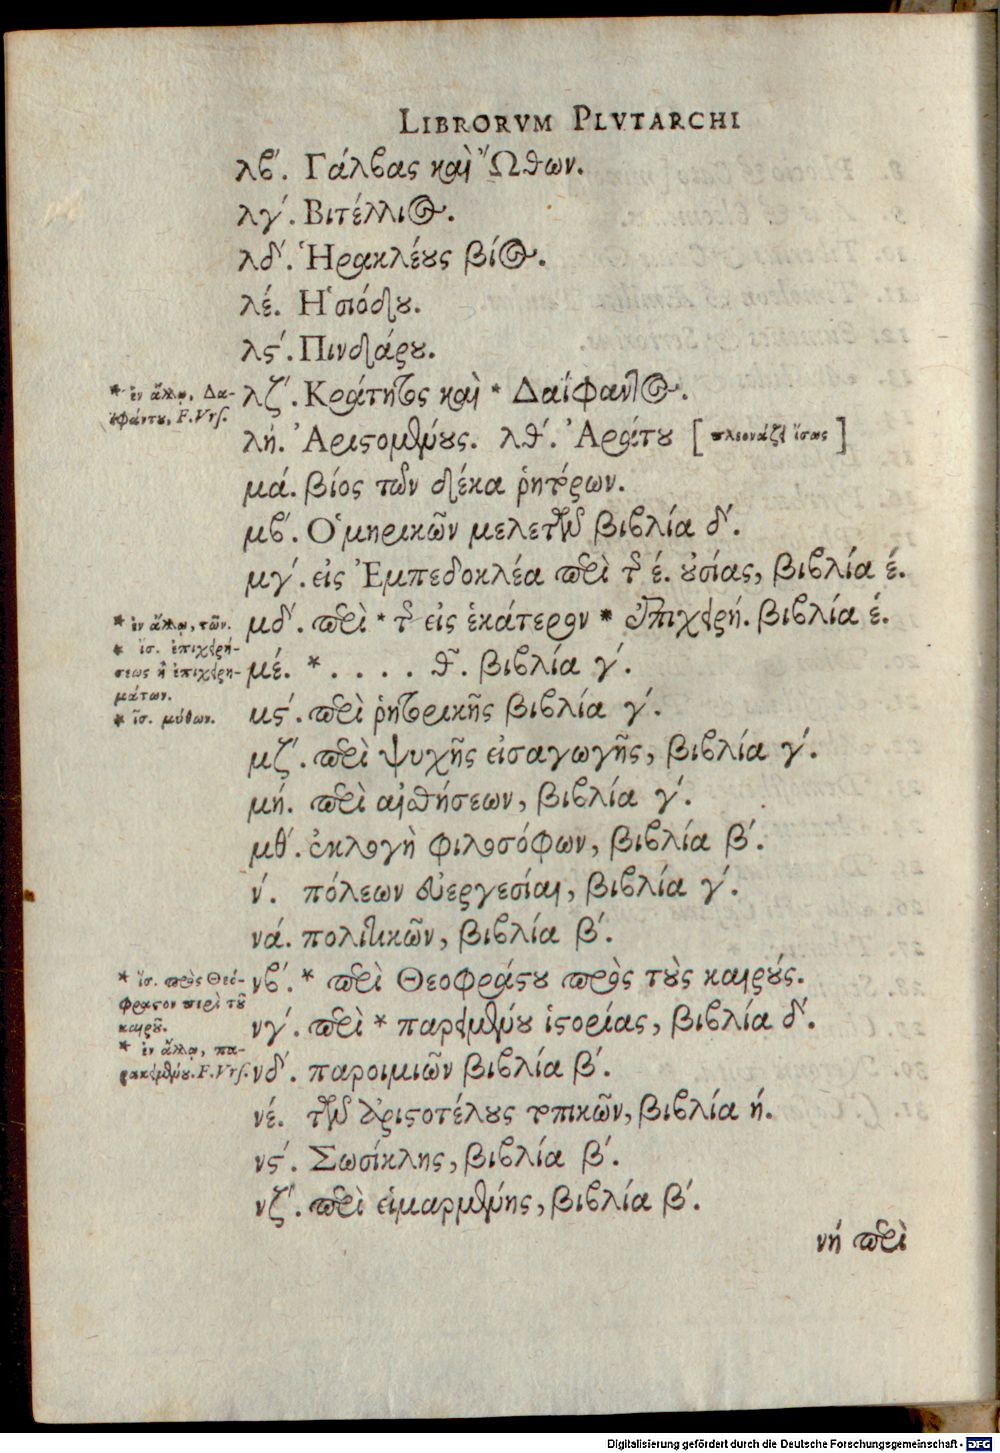 LIBRORVM PLVTARCHI
λβ΄. Γάλβας καὶ Ὤθων.
λγ΄. Βιτέλλιος.
λδ΄. Ἡρακλέους βίος.
λέ. Ἡσιόδου.
λϛ΄. Πινδάρου.
* ἐν ἄλλῳ, Δα-
ϊφάντου, F. Vrs.
λζ΄. Κράτητος καὶ * Δαΐφαντος.
λή. Ἀριστομένους. λθ΄. Ἀράτου [πλεονάζει ἴσως]
μά. βίος τῶν δέκα ῥητόρων.
μβ΄. Ὁμηρικῶν μελετῶν βιβλία δ΄.
μγ΄. εἰς Ἐμπεδοκλέα περὶ τῆς έ. οὐσίας, βιβλία έ.
* ἐν ἄλλῳ, τῶν.
* ἴσ. ἐπιχειρή-
σεως ἢ ἐπιχειρη-
μάτων.
* ἴσ. μύθων.
μδ΄. περὶ * τῆς εἰς ἑκάτερον * ἐπιχειρή. βιβλία έ.
μέ. * . . . . θ͂. βιβλία γ΄.
μϛ΄. περὶ ῥητορικῆς βιβλία γ΄.
μζ΄. περὶ ψυχῆς εἰσαγωγῆς, βιβλία γ΄.
μή. περὶ αἰσθήσεων, βιβλία γ΄.
μθ΄. ἐκλογὴ φιλοσόφων, βιβλία β΄.
ν΄. πόλεων εὐεργεσίαι, βιβλία γ΄.
νά. πολιτικῶν, βιβλία β΄.
* ἴσ. πρὸς Θεό-
φραστον περὶ τοῦ
καιροῦ.
* ἐν ἄλλῳ, πα-
ρακειμένου. F. Vrs.
νβ΄. * περὶ Θεοφράστου πρὸς τοὺς καιρούς.
νγ΄. περὶ * παρειμένου ἱστορίας, βιβλία δ΄.
νδ΄. παροιμιῶν βιβλία β΄.
νέ. τῶν Ἀριστοτέλους τοπικῶν, βιβλία ή.
νϛ΄. Σωσίκλης, βιβλία β΄.
νζ΄. περὶ εἱμαρμένης, βιβλία β΄.
νή περὶ
Digitalisierung gefördert durch die Deutsche Forschungsgemeinschaft - DFG